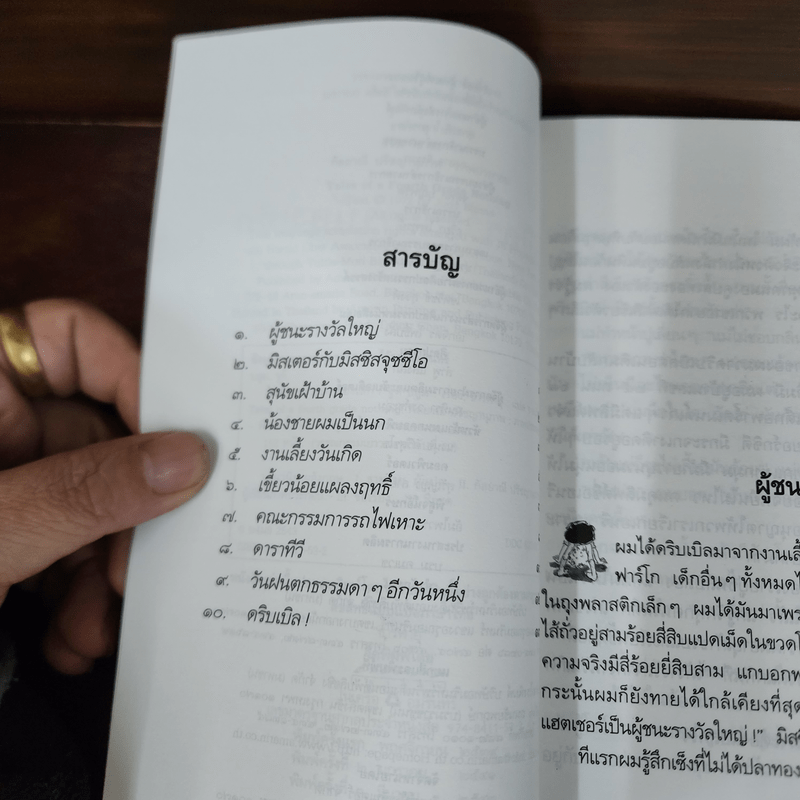 สารบัญ
๑. ผู้ชนะรางวัลใหญ่
๒. มิสเตอร์กับมิสซิสจุชชีโอ
๓. สุนัขเฝ้าบ้าน
๔. น้องชายผมเป็นนก
๕. งานเลี้ยงวันเกิด
๖. เขี้ยวน้อยแผลงฤทธิ์
๗. คณะกรรมการรถไฟเหาะ
๘. ดาราทีวี
๙. วันฝนตกธรรมดา ๆ อีกวันหนึ่ง
๑๐. ดริบเบิล !
ผู้ชน
ผมได้ดริบเบิลมาจากงานเลี้
ฟาร์โก เด็กอื่น ๆ ทั้งหมดไ
ในถุงพลาสติกเล็ก ๆ ผมได้มันมาเพร
ไส้ถั่วอยู่สามร้อยสี่สิบแปดเม็ดในขวดโ
ความจริงมีสี่ร้อยยี่สิบสาม แกบอกพ
กระนั้นผมก็ยังทายได้ใกล้เคียงที่สุด
แฮตเชอร์เป็นผู้ชนะรางวัลใหญ่ !" มิส
ทีแรกผมรู้สึกเซ็งที่ไม่ได้ปลาทอง